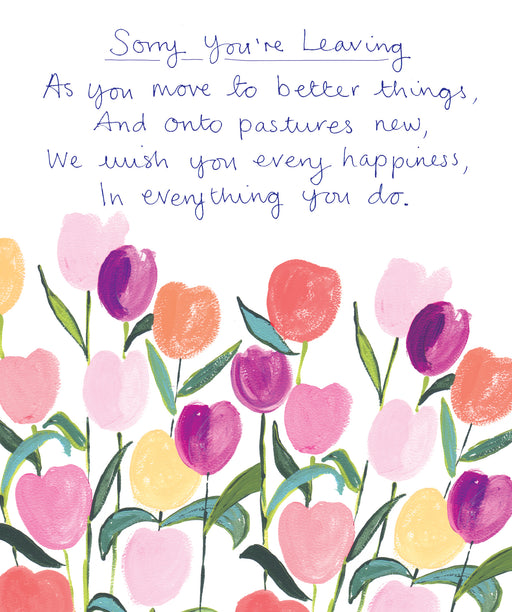 Sorry You're Leaving
As you move to better things,
And onto pastures new,
We wish you every happiness,
In everything you do.